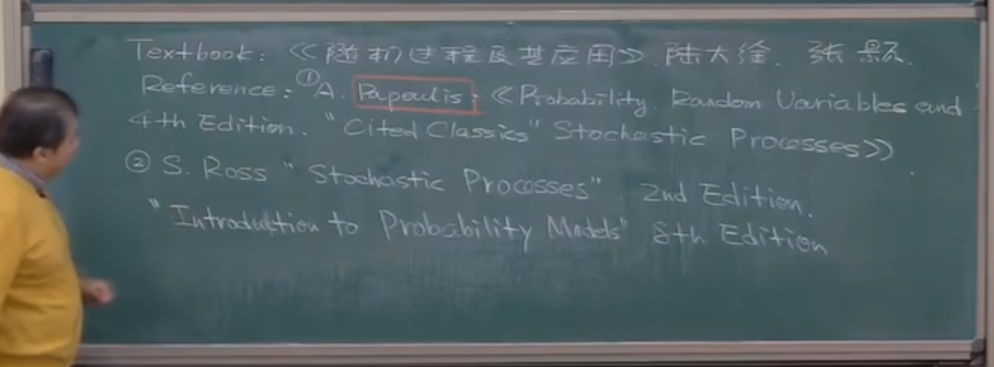 Textbook: 《随机过程及其应用》. 陆大絟. 张颢.
Reference: ①A. Papoulis: 《Probability. Random Variables and
4th Edition. "Cited Classics" Stochastic Processes》
② S. Ross "Stochastic Processes" 2nd Edition.
"Introduction to Probability Models" 8th Edition